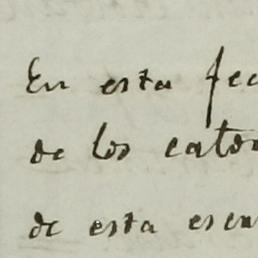 En esta fec
de los cator
de esta escu